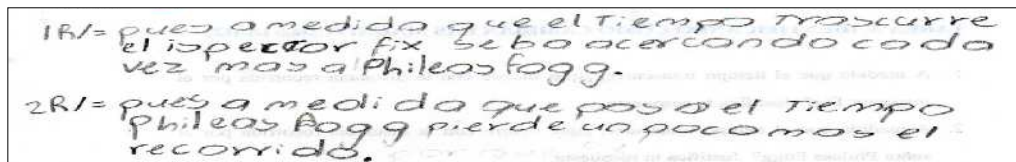 1R/= pues a medida que el Tiempo Trascurre
el ispector fix se ba acercando cada
vez mas a Phileas fogg.
2R/= pues a medida que pasa el Tiempo
Phileas Fogg pierde un poco mas el
recorrido.